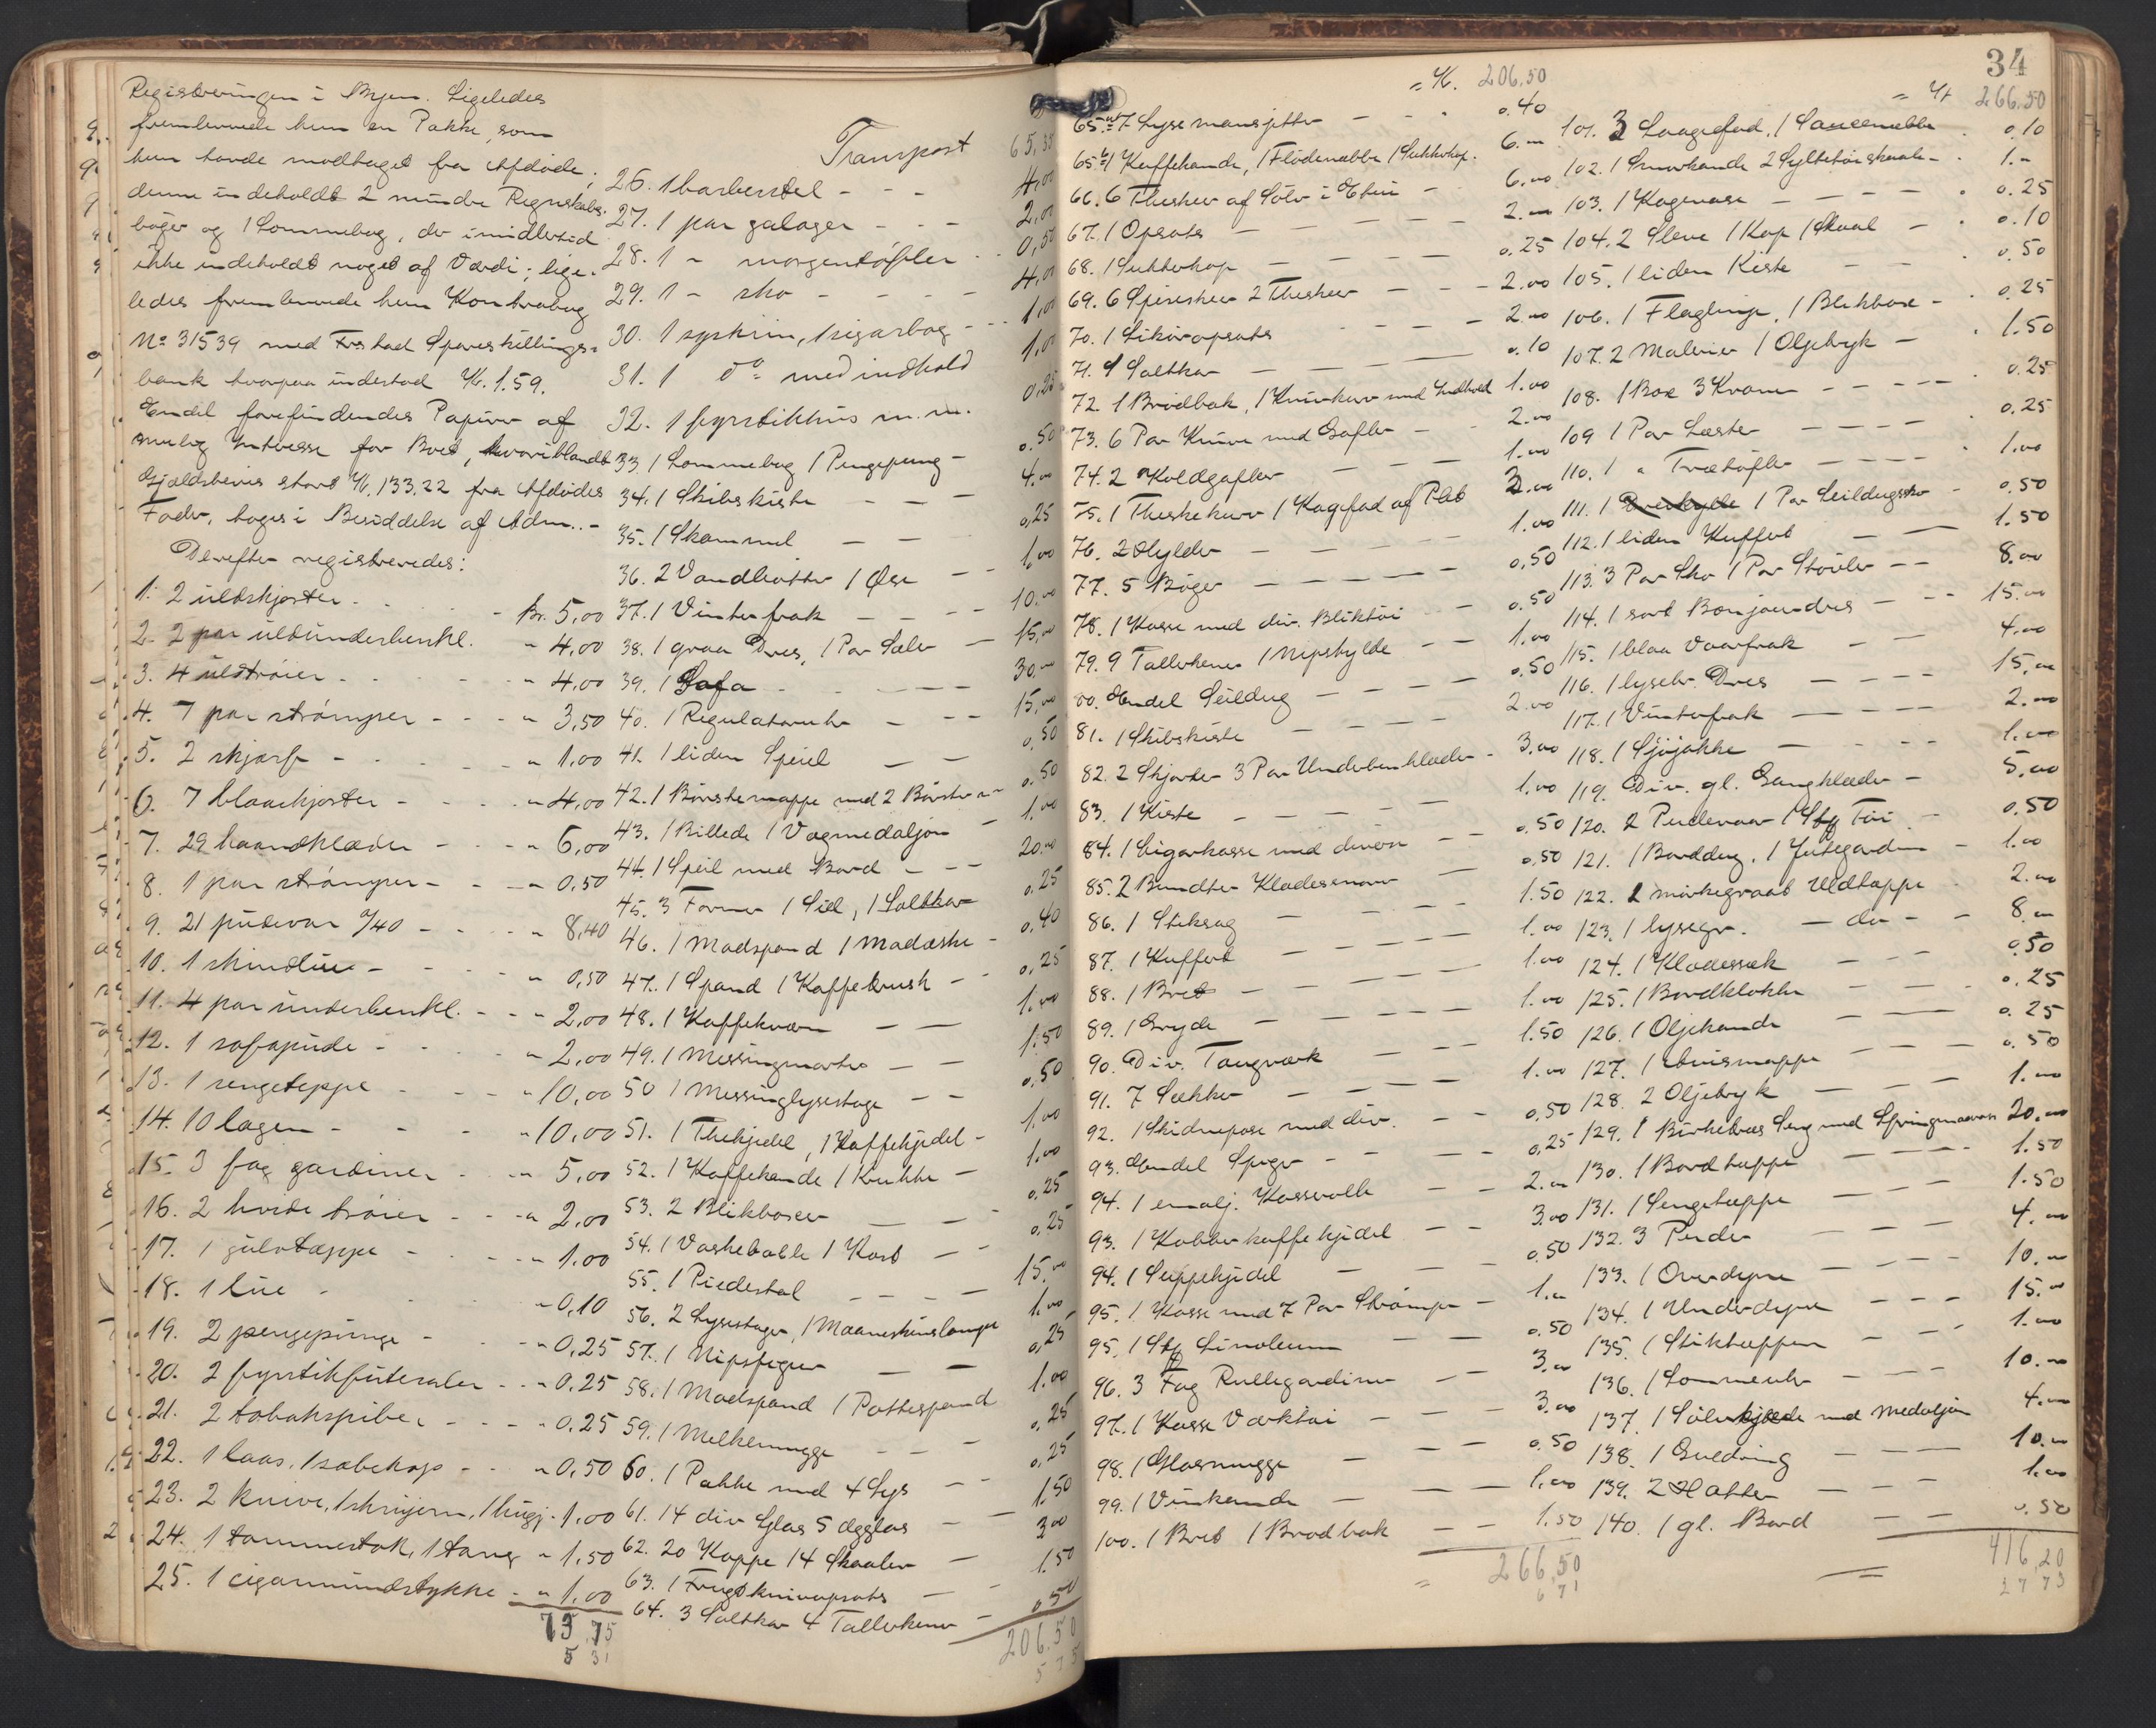 Registreringen i Byen. Ligeledes
fremleverede hun en Pakke, som
hun havde modtaget fra Afdøde;
denne indeholdt 2 mindre Regnskabs-
bøger og 1 Lommebog, der imidlertid
ikke indeholdt noget af Værdi; lige-
ledes fremleverede hun Kontrabog
No 31539 med Sparestillings-
bank hvorpaa indestod Kr. 1.59.
Endel forefindendes Papirer af
mulig Interesse for Boet, hvoriblandt
Gjældsbevis stort Kr. 133,22 fra Afdødes
Fader, toges i Besiddelse af Adm.. -
Derefter registreredes:
1. 2 uldskjorter - Kr. 5,00
2. 2 par uldunderbenkl. " 4,00
3. 4 uldtrøier - " 4,00
4. 7 par strømper - " 3,50
5. 2 skjærf - " 1.00
6. 7 blaaskjorter - " 4,00
7. 29 haandklæder - " 6,00
8. 1 par strømper - " 0,50
9. 21 pudevar a/40 - " 8,40
10. 1 skindlue - " 0,50
11. 4 par underbenkl. - " 2,00
12. 1 sofapude - " 2,00
13. 1 sengeteppe - " 10,00
14. 10 lagen - " 10,00
15. 3 fag gardiner - " 5,00
16. 2 hvide trøier - " 2,00
17. 1 gulvtæppe - " 1.00
18. 1 lue - " 0,10
19. 2 pengepunge - " 0,25
20. 2 fyrstikfuteraler - " 0.25
21. 2 tobakspiber - " 0.25
22. 1 laas, 1 sæbekop - " 0,50
23. 2 knive, 1 skrujern, 1 hugj. - 1,00
24. 1 tommestok, 1 tang " 1,50
25. 1 cigarmundstykke - " 1,00
75,75
5 31
Transport 65,35
26. 1 barberstel - 4,00
27. 1 par galoger - 2,00
28. 1 " morgentøfler - 0,50
29. 1 " sko - 4,00
30. 1 syskrin, 1 sigarbog - 1,00
31. 1 do med indhold 1,00
32. 1 fyrstikhus m.m. 0,25
33. 1 Lommebog 1 Pengepung - 0.50
34. 1 Skibskiste - 4.00
35. 1 Skammel - 0,25
36. 2 Vandbøtter 1 Øse - 1,00
37. 1 Vinterfrak - 10.00
38. 1 graa Dres, 1 Par Seler - 15,00
39. 1 Sofa - 30.00
40. 1 Regulatoruhr - 15,00
41. 1 liden Speiel - 0,50
42. 1 Børstemappe med 2 Børster - 0.50
43. 1 Billede 1 Vægmedaljon - 1,00
44. 1 Speil med Bord - 20.00
45. 3 Former 1 Sil, 1 Saltkar 0,25
46. 1 Madspand 1 Madæske - 0,40
47. 1 Spand 1 Kaffebrush - 0,25
48. 1 Kaffekværn - 1.00
49. 1 Messingmorter - 1.50
50 1 Messinglysestage - 0,50
51. 1 Thekjedel, 1 Kaffekjedel - 1,00
52. 1 Kaffekande 1 Krukke - 1.00
53. 2 Blikboxer - 0,25
54. 1 Vaskebalie 1 Kost - 0,25
55. 1 Piedestal - 15.00
56. 2 Lysestager, 1 Maaneskinslampe 1.00
57. 1 Nipsfigur - 0,25
58. 1 Madspand 1 Pottespand 1.00
59. 1 Melkemugge - 0,25
60. 1 Pakke med 4 Lys - 0,25
61. 14 div Glas 5 Ægglas - 1.50
62. 20 Koppe 14 Skaaler - 3.00
63. 1 Frugtknivopsats - 1.50
64. 3 Saltkar 4 Tallerkener - 0,50
206.50
34
= Kr. 206.50
65a 7 Lysemansjetter - 0.40
65b 1 Kaffekande, 1 Flødenæbbe 1 Sukkerkop. 6.00
66. 6 Theskeer af Sølv i Etui - 6.00
67. 1 Opsats - 2.00
68. 1 Sukkerkop - 0.25
69. 6 Spiseskeer 2 Theskeer - 2.00
70. 1 Likøropsats - 2.00
71. 1 Saltkar - 0.10
72. 1 Brødbak, 1 Knivkurv med Indhold 1.00
73. 6 Par Knive med Gafler - 2.00
74. 2 Koldgafler - 1.00
75. 1 Theskekurv 1 Kagfad af Plet 2.00
76. 2 Hylder - 1.00
77. 5 Bøger - 0,50
78. 1 Kasse med div. Bliktøi - 0.50
79. 9 Tallerkener 1 Nipshylde - 1.00
80. Endel Seildug - 0.50
81. 1 Skibskiste - 2.00
82. 2 Skjorter 3 Par Underbenklæder - 3.00
83. 1 Kiste - 1.00
84. 1 Cigarkasse med divers - 0.50
85. 2 Bundter Klædessnor - 0,50
86. 1 Stiksag - 1.50
87. 1 Kuffert - 1.00
88. 1 Bret - 1.00
89. 1 Gryde - 1.00
90. Div. Taugværk - 1.50
91. 7 Sække - 1.00
92. 1 Skidnepose med div. - 0,50
93. Endel Spiger - 0,25
94. 1 emalj. Kasserolle - 2.00
93. 1 Kobberkaffekjedel - 3.00
94. 1 Suppekjedel - 0.50
95. 1 Kasse med 7 Par Strømper - 1.00
95. 1 Stk Linoleum - 0.50
96. 3 Fag Rullegardiner - 3.00
97. 1 Kasse Værktøi - 3.00
98. 1 Glasmugge - 0.50
99. 1 Vinkande - 1.00
100. 1 Bret 1 Brødbak - 1.50
= 266,50
6 71
= Kr 266.50
101. 3 Laagefad, 1 Saucenæbbe 0.10
102. 1 Smørkande 2 Syltetøiskaale - 1.-
103. 1 Kagevase - 0.25
104. 2 Sleve 1 Kop 1 Skaal - 0.10
105. 1 liden Kiste - 0.50
106. 1 Flagline, 1 Blikboxe - 0.25
107. 2 Malerier 1 Oljetryk - 1.50
108. 1 Box 3 Kraner - 0.25
109 1 Par Læster - 0.25
110. 1 " Trætøfler - 1.00
111. 1 Par Seildugssko - 0.50
112. 1 liden Kuffert - 1.50
113. 3 Par Sko 1 Par Støvler - 8.00
114. 1 sort Bonjourdres - 15.00
115. 1 blaa Vaarfrak - 4.00
116. 1 lysebr. Dres - 15.00
117. 1 Vinterfrak - 2.00
118. 1 Sjøjakke - 1.00
119. Div. gl. Gangklæder - 5.00
120. 2 Pudevaar 1 Stk Tøi - 0.50
121. 1 Borddug, 1 Jutegardin - 1.00
122. 1 mørkegraat Uldtæppe 2.00
123. 1 lysegr. - do - 8.00
124. 1 Klædessæk - 0.50
125. 1 Bordklokke - 0.25
126. 1 Oljekande - 0.25
127. 1 Avismappe - 0.50
128. 2 Oljetryk - 1.00
129. 1 Birketræs Seng med Springmadras 20.00
130. 1 Bordtæppe - 1.50
131. 1 Sengetæppe - 1.50
132. 3 Puder - 4.00
133. 1 Overdyne - 10.00
134. 1 Underdyne - 15.00
135. 1 Stiktæppen - 1.00
136. 1 Lommeuhr - 10.00
137. 1 Sølvkjæde med Medaljon 4.00
138. 1 Guldring - 10.00
139. 2 Hatter - 1.00
140. 1 gl. Bord - 0.50
416,20
27 73